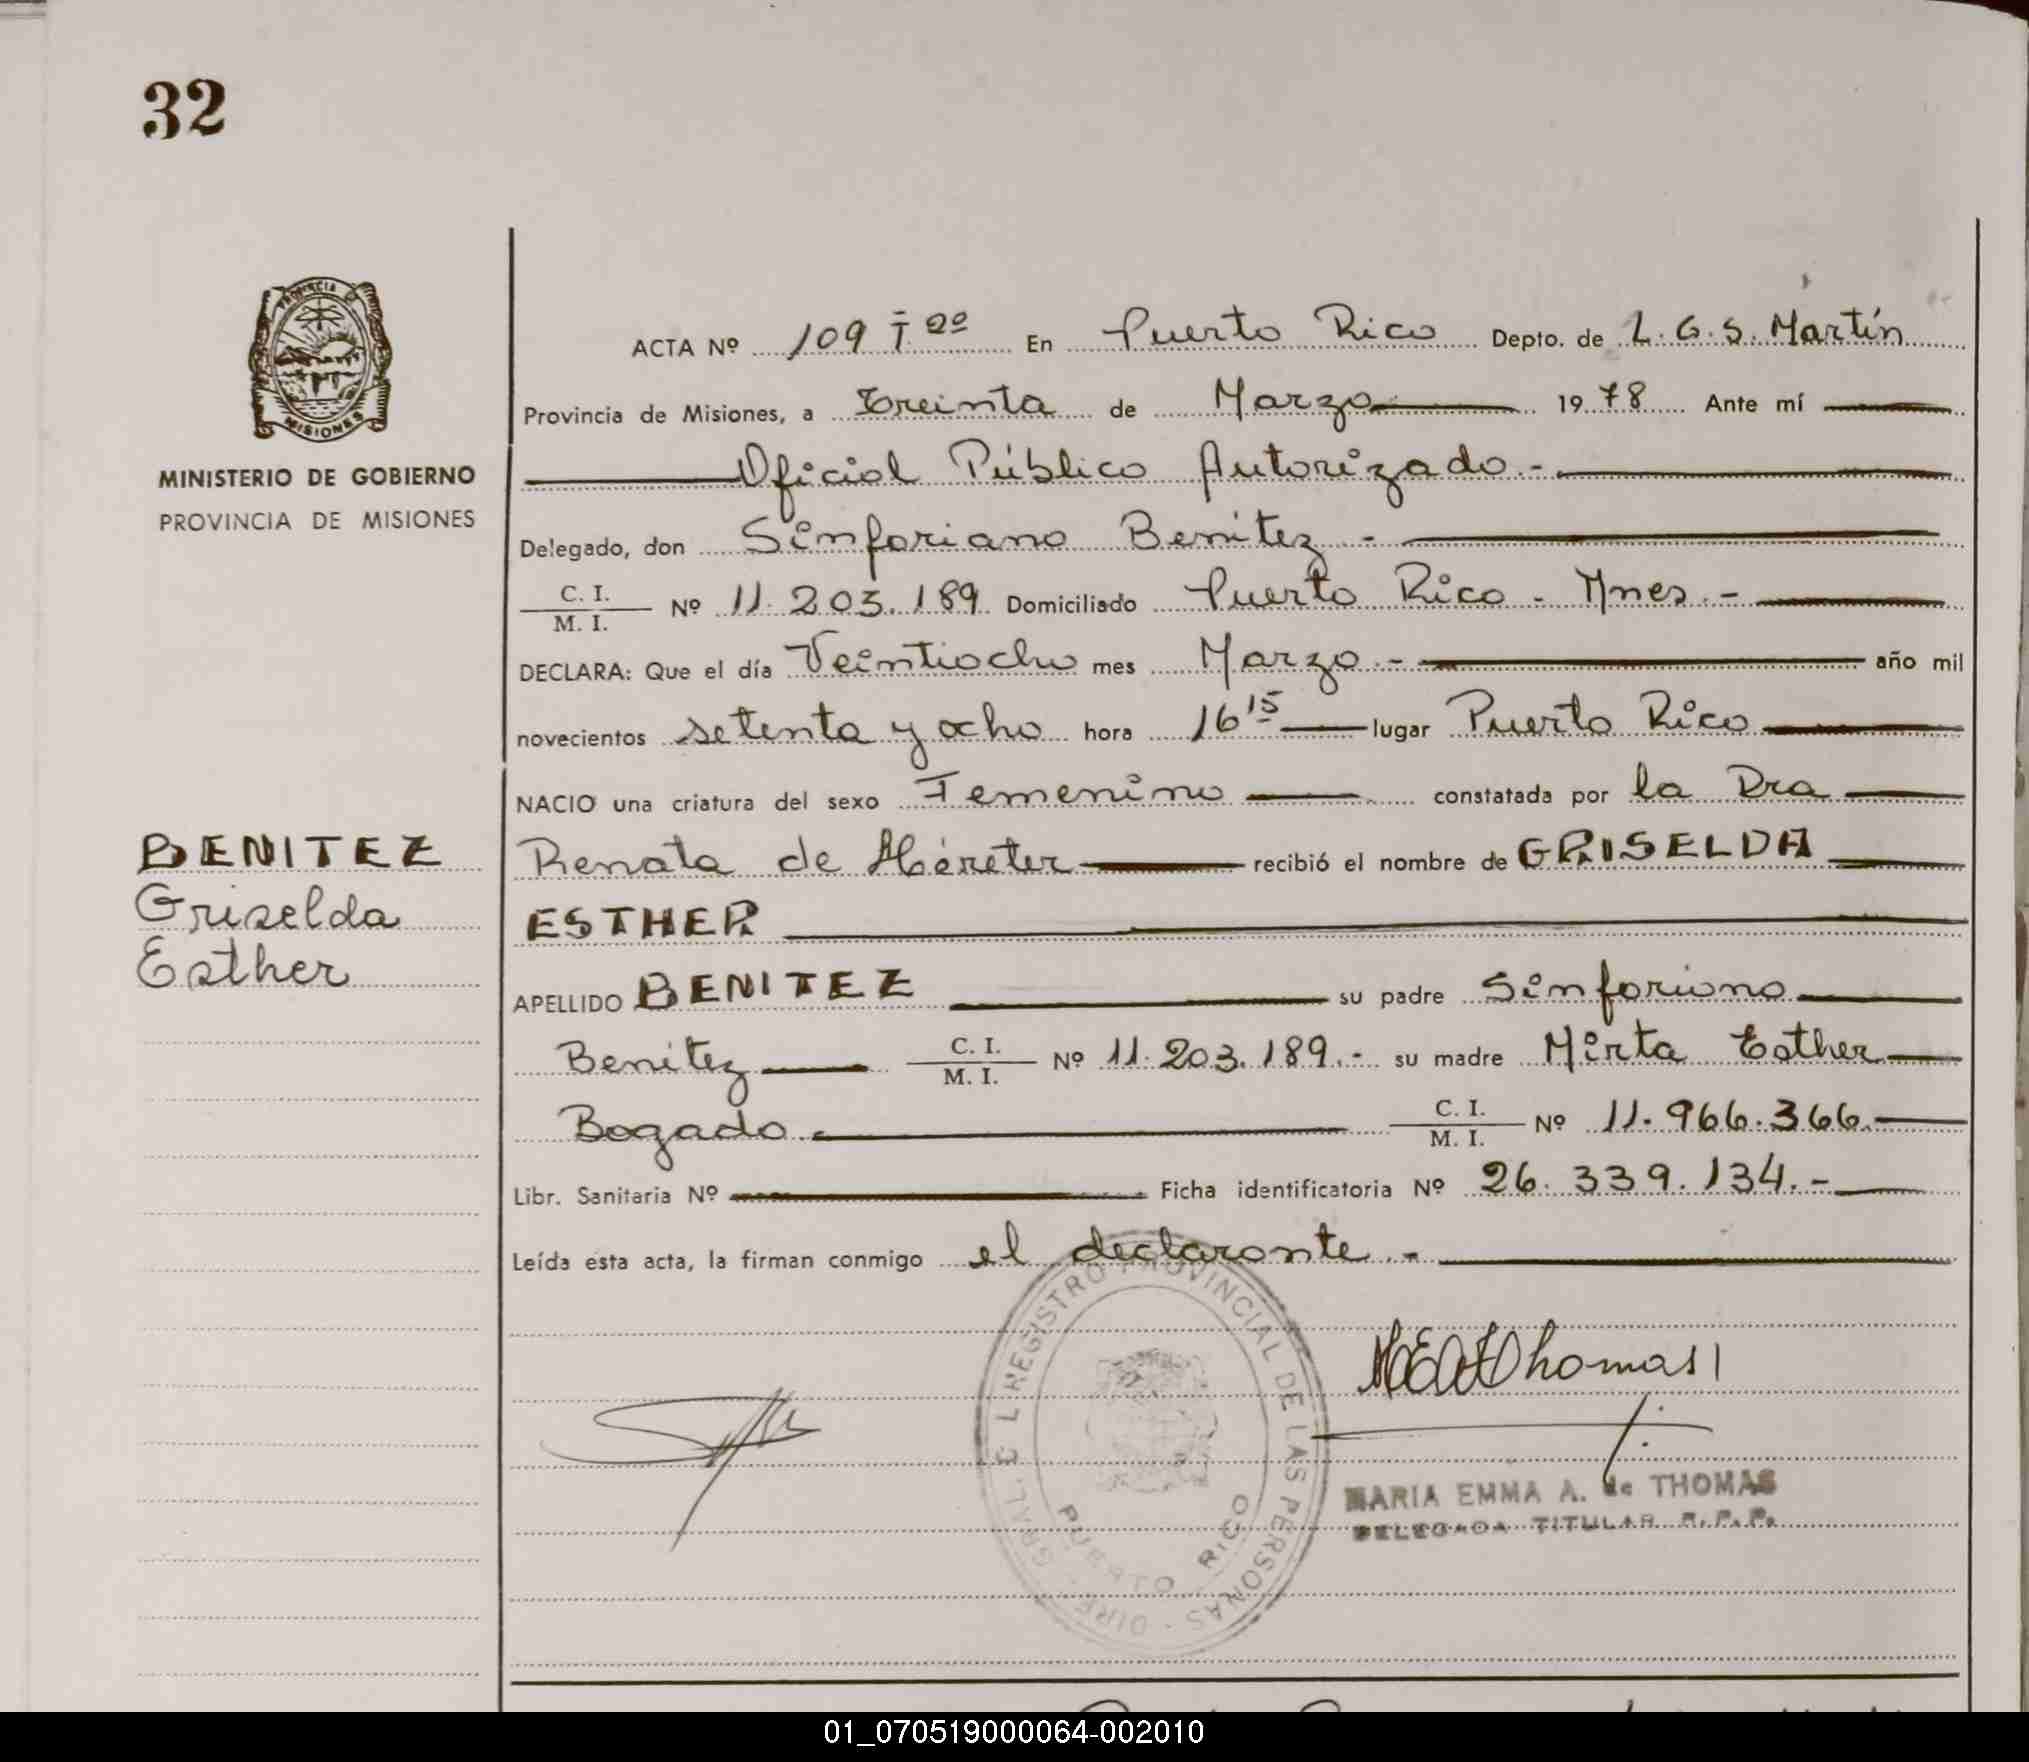 32
PROVINCIA
MISIONES
MINISTERIO DE GOBIERNO
PROVINCIA DE MISIONES
ACTA Nº 109 T 2º En Puerto Rico Depto. de L. G. S. Martín
Provincia de Misiones, a Treinta de Marzo 1978 Ante mí
Oficial Público Autorizado.-
Delegado, don Sinforiano Benitez -
C. I. / M. I. Nº 11.203.189 Domiciliado Puerto Rico - Mnes.-
DECLARA: Que el día Veintiocho mes Marzo.- año mil
novecientos setenta y ocho hora 16 15 lugar Puerto Rico
NACIO una criatura del sexo Femenino constatada por la Dra
BENITEZ
Griselda
Esther
Renata de Méreter recibió el nombre de GRISELDA
ESTHER
APELLIDO BENITEZ su padre Sinforiano
Benitez C. I. / M. I. Nº 11.203.189.- su madre Mirta Esther
Bogado C. I. / M. I. Nº 11.966.366.
Libr. Sanitaria Nº Ficha identificatoria Nº 26.339.134.-
Leída esta acta, la firman conmigo el declarante.-
DIRE GRAL. REGISTRO PROVINCIAL DE LAS PERSONAS
PUERTO RICO
Thomas
MARIA EMMA A. de THOMAS
DELEGADA TITULAR R.P.P.
01_070519000064-002010